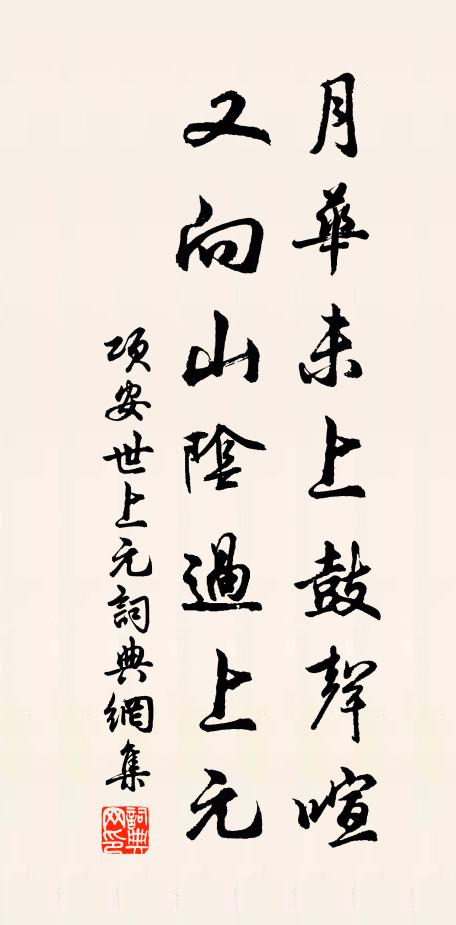 月華未上鼓聲喧
又向山陰過上元
項安世上元詞典網集
詞典網印